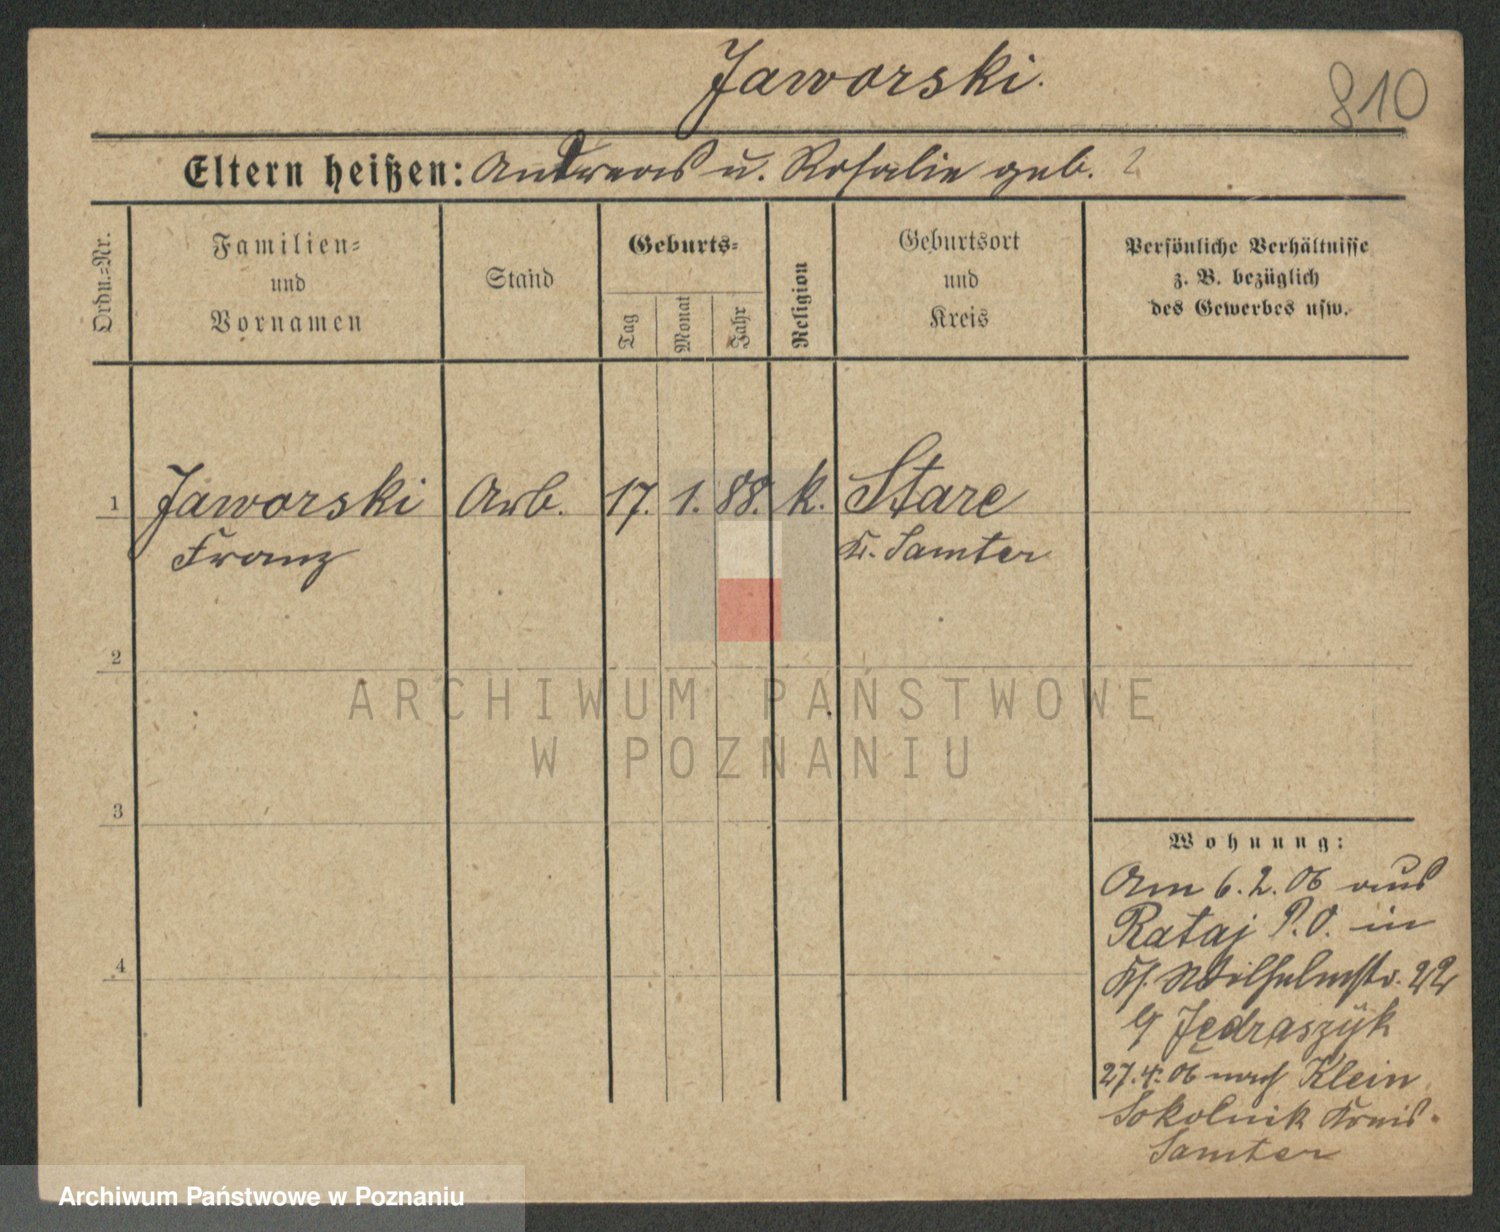 Jaworski.
810
Eltern heißen: Andreas u. Rosalie geb. ?
Ordn.=Nr.
Familien=
und
Vornamen
Stand
Geburts=
Tag
Monat
Jahr
Religion
Geburtsort
und
Kreis
Persönliche Verhältnisse
z. B. bezüglich
des Gewerbes usw.
1 Jaworski Arb. 17. 1. 88. k. Stare
Franz Kr. Samter
2
3
4
ARCHIWUM PAŃSTWOWE
W POZNANIU
Wohnung:
Am 6.2.06 aus
Rataj P.O. in
Wilhelmstr. 22
Jędraszyk
27.4.06 nach Klein
Sokolnik Kreis
Samter
Archiwum Państwowe w Poznaniu